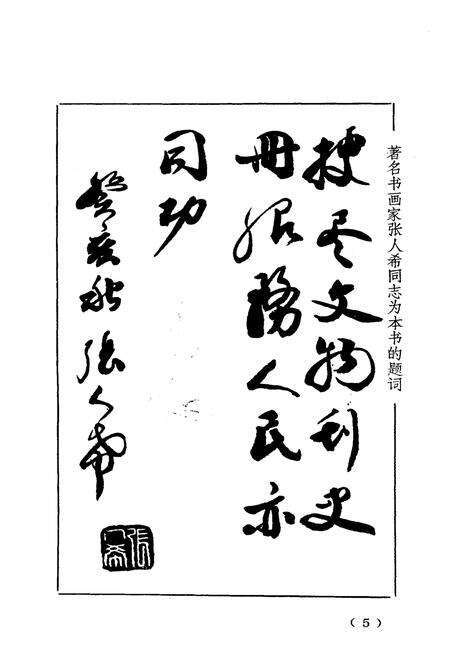 著名书画家张人希同志为本书的题词
搜尽文物刊史
册服务人民亦
同功
癸亥秋 张人希
张人希
(5)